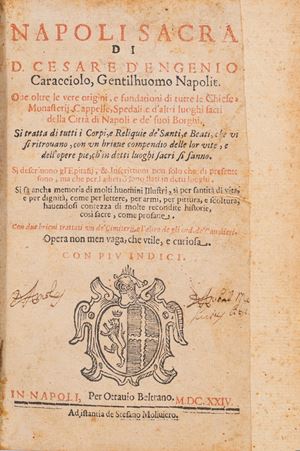 NAPOLI SACRA
DI
D. CESARE D'ENGENIO
Caracciolo, Gentilhuomo Napolit.
Oue oltre le vere origini, e fundationi di tutte le Chiese
Monasterij, Cappelle, Spedali e d'altri luoghi sacri
della Città di Napoli e de' suoi Borghi.
Si tratta di tutti i Corpi, e Reliquie de' Santi, e Beati, che vi
si ritrouano, con vn briue compendio delle lor vite, e
dell'opere pie, ch'in detti luoghi sacri si fanno.
Si descriuono gli Epitafij, & Inscrittioni non solo che di presente
sono, ma che per l'adietro erano in detti luoghi.
Si fà anche memoria di molti huomini Illustri, sì per santità di vita,
e per dignità, come per lettere, per armi, per pittura, e scoltura,
hauendosi contezza di molte recondite historie,
così sacre, come profane.
Con due breui trattati
Opera non men vaga, che vtile, e curiosa.
CON PIV INDICI.
IN NAPOLI, Per Ottauio Beltrano. M.DC.XXIV.
Ad istantia de Stefano